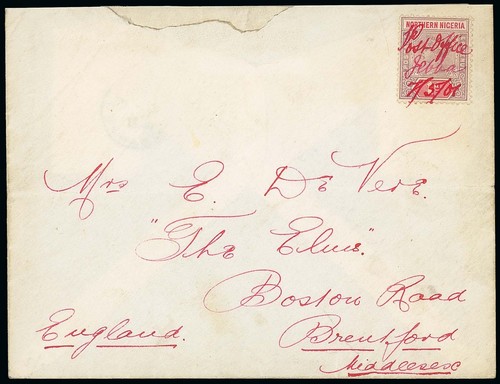 NORTHERN NIGERIA
Post Office
Jebba
7/3/01
Mrs E. De Vere.
"The Elms".
Boston Road
England.
Brentford
Middlesex